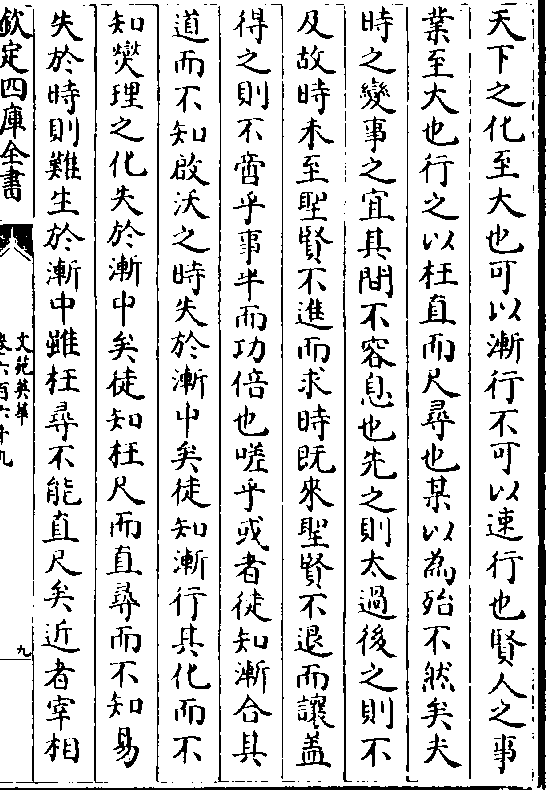 天下之化至大也可以漸行不可以速行也賢人之事
業至大也行之以枉直而尺尋也某以為殆不然矣夫
時之變事之宜其間不容息也先之則太過後之則不
及故時未至聖賢不進而求時既來聖賢不退而讓蓋
得之則不啻乎事半而功倍也嗟乎或者徒知漸合其
道而不知啟沃之時失於漸中矣徒知漸行其化而不
知燮理之化失於漸中矣徒知枉尺而直尋而不知易
失於時則難生於漸中雖枉尋不能直尺矣近者宰相
欽定四庫全書
文苑英華
卷六百六十九
九